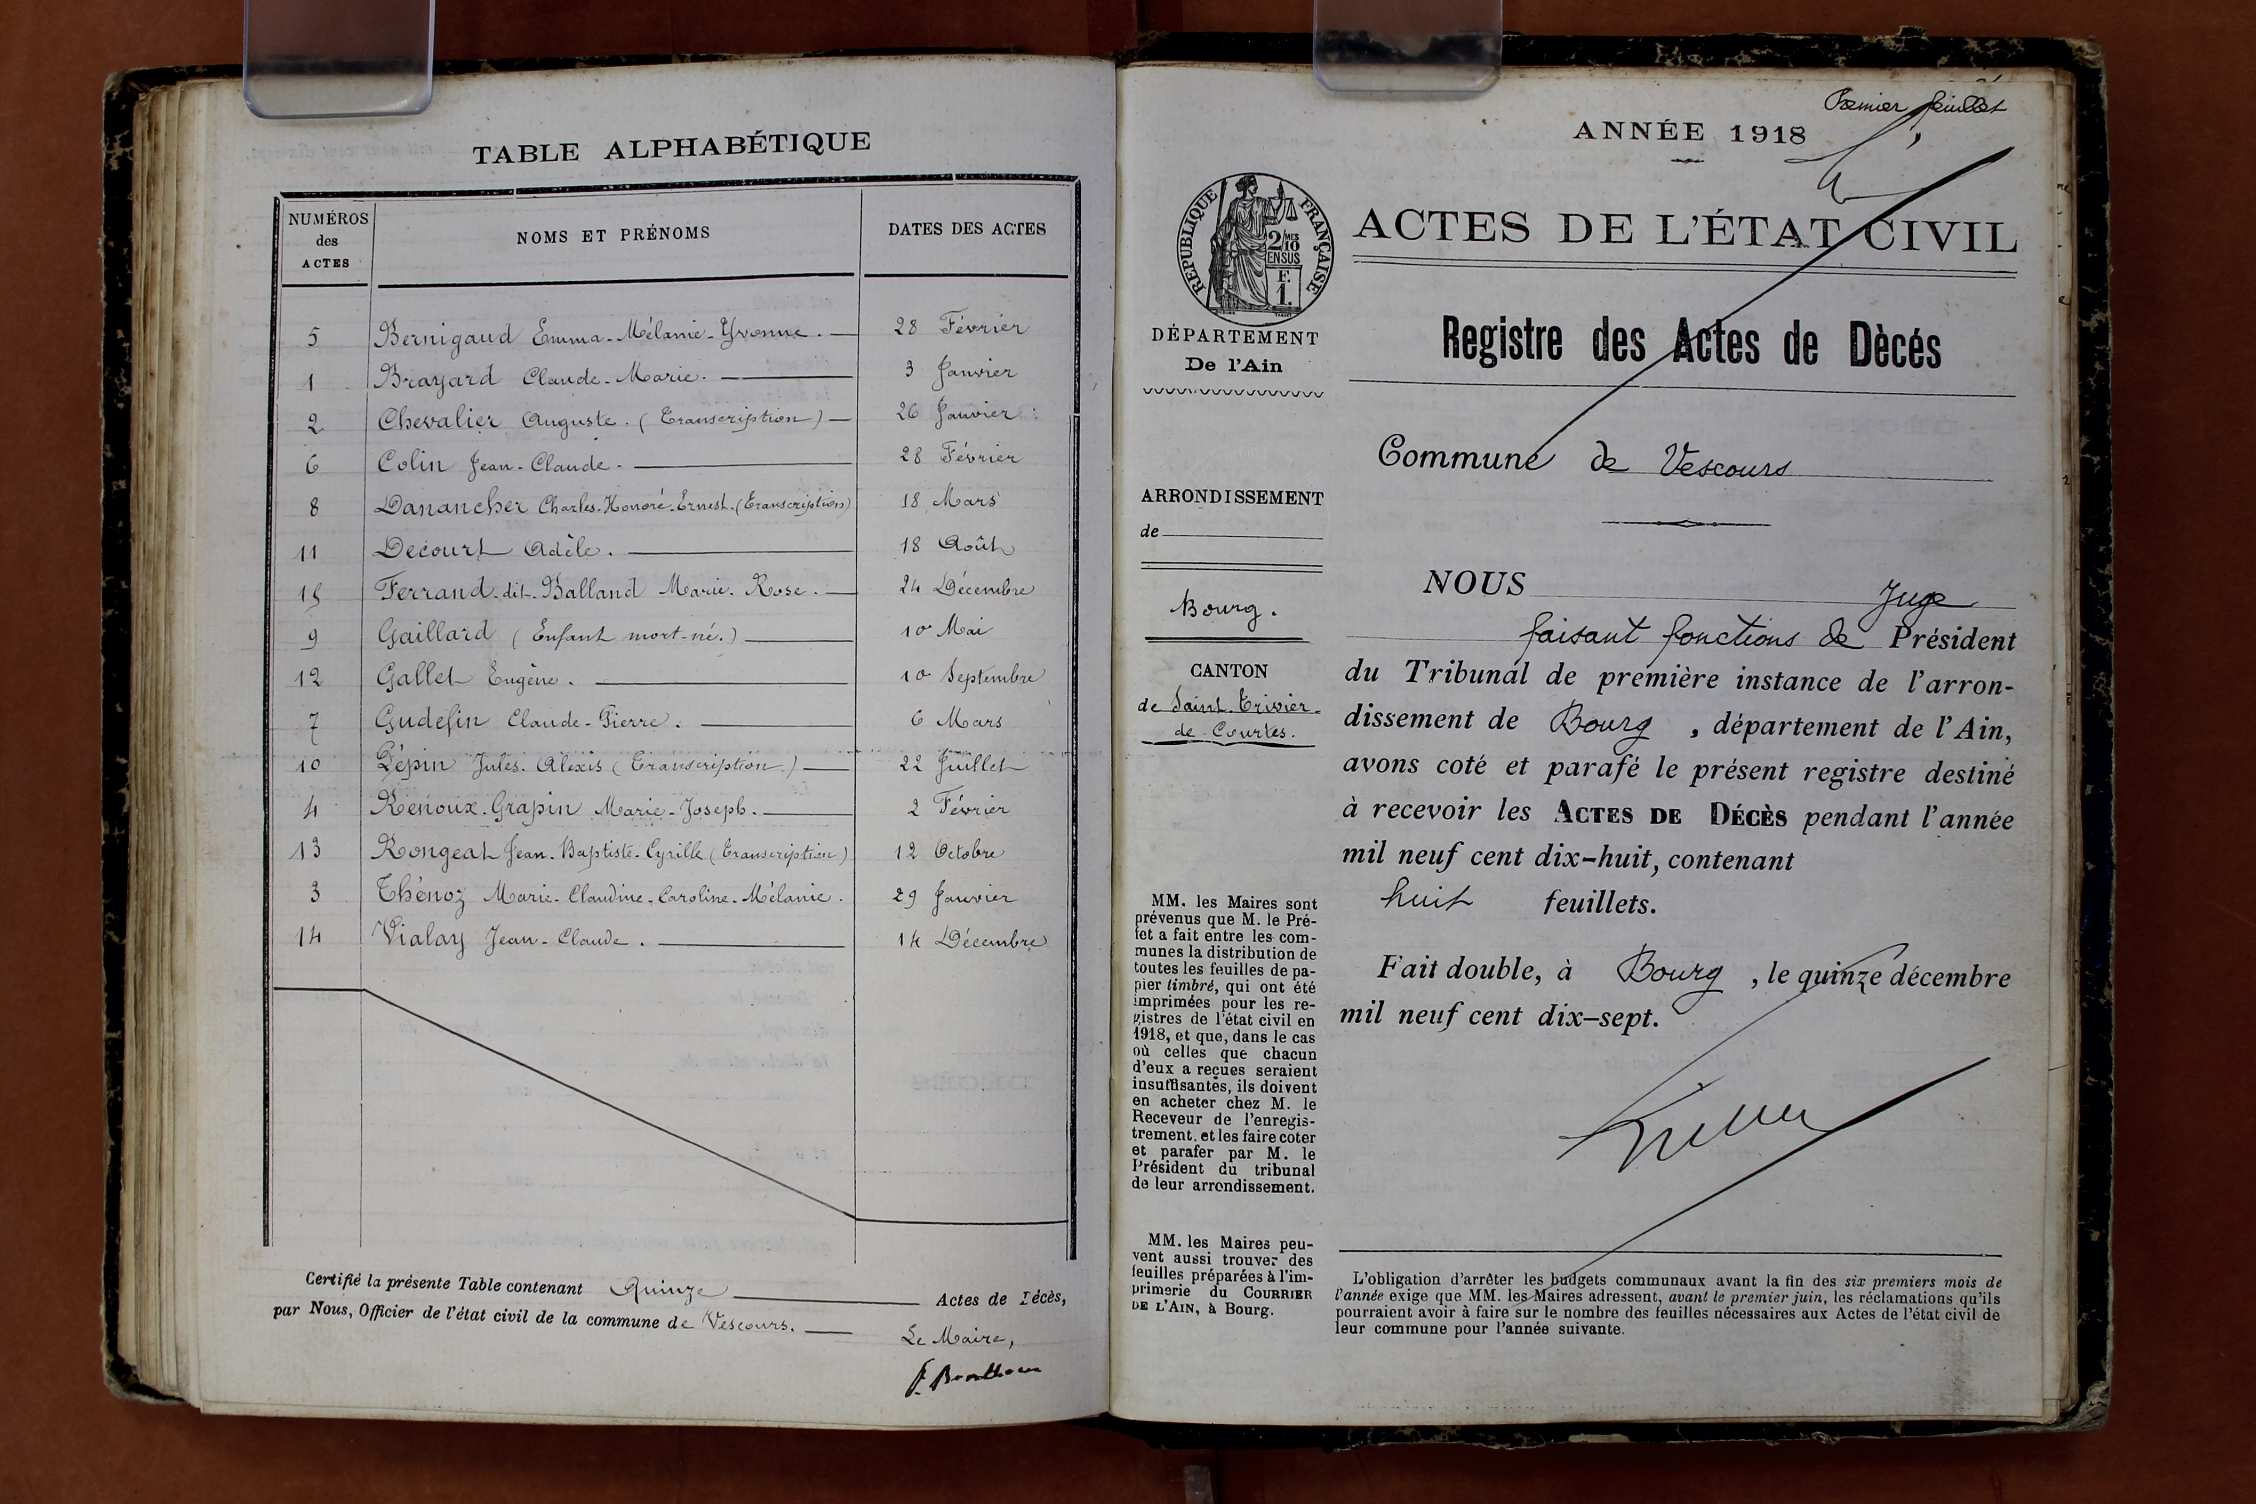 TABLE ALPHABÉTIQUE
NUMÉROS des ACTES NOMS ET PRÉNOMS DATES DES ACTES
5 Bernigaud Emma-Mélanie-Yvonne. 28 Février
1 Brayard Claude-Marie. 3 Janvier
2 Chevalier Auguste. (Transcription) 26 Janvier
6 Colin Jean-Claude. 28 Février
8 Danancher Charles-Honoré-Ernest. (Transcription) 18 Mars
11 Decourt Adèle. 18 Août
15 Ferrand-dit-Balland Marie-Rose. 24 Décembre
9 Gaillard (Enfant mort-né.) 10 Mai
12 Gallet Eugène. 10 Septembre
7 Gudefin Claude-Pierre. 6 Mars
10 Pépin Jules-Alexis (Transcription.) 22 Juillet
4 Renoux-Grapin Marie-Joseph. 2 Février
13 Rongeat Jean-Baptiste-Cyrille (Transcription) 12 Octobre
3 Thénoz Marie-Claudine-Caroline-Mélanie. 29 Janvier
14 Vialay Jean-Claude. 14 Décembre
Certifié la présente Table contenant Quinze Actes de Décès,
par Nous, Officier de l'état civil de la commune de Vescours.
Le Maire,
Premier feuillet
ANNÉE 1918
RÉPUBLIQUE FRANÇAISE
2/10 MES
EN SUS
F.
1.
ACTES DE L'ÉTAT CIVIL
DÉPARTEMENT
De l'Ain
Registre des Actes de Dècés
Commune de Vescours
ARRONDISSEMENT
de
Bourg.
CANTON
de Saint-Trivier-
de-Courtes.
NOUS Juge
faisant fonctions de Président
du Tribunal de première instance de l'arron-
dissement de Bourg, département de l'Ain,
avons coté et parafé le présent registre destiné
à recevoir les ACTES DE DÉCÈS pendant l'année
mil neuf cent dix-huit, contenant
huit feuillets.
Fait double, à Bourg, le quinze décembre
mil neuf cent dix-sept.
MM. les Maires sont
prévenus que M. le Pré-
fet a fait entre les com-
munes la distribution de
toutes les feuilles de pa-
pier timbré, qui ont été
imprimées pour les re-
gistres de l'état civil en
1918, et que, dans le cas
où celles que chacun
d'eux a reçues seraient
insuffisantes, ils doivent
en acheter chez M. le
Receveur de l'enregis-
trement, et les faire coter
et parafer par M. le
Président du tribunal
de leur arrondissement.
MM. les Maires peu-
vent aussi trouver des
feuilles préparées à l'im-
primerie du COURRIER
DE L'AIN, à Bourg.
L'obligation d'arrêter les budgets communaux avant la fin des six premiers mois de
l'année exige que MM. les Maires adressent, avant le premier juin, les réclamations qu'ils
pourraient avoir à faire sur le nombre des feuilles nécessaires aux Actes de l'état civil de
leur commune pour l'année suivante.